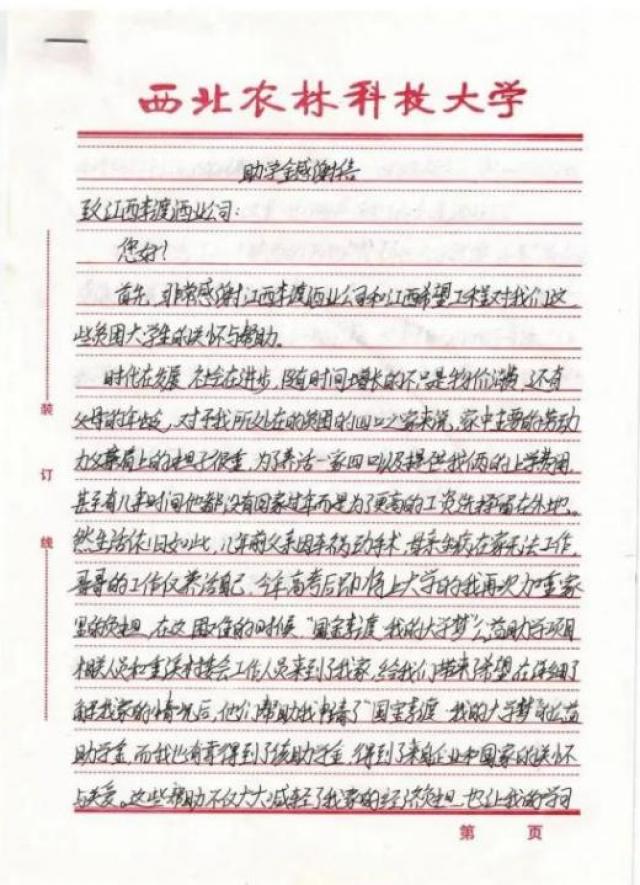 西北农林科技大学
助学金感谢信
致江西李渡酒业公司：
您好！
首先，非常感谢江西李渡酒业公司和江西希望工程对我们这
些贫困大学生的关怀与帮助。
时代在发展，社会在进步，随着时间增长的不只是物价消费，还有
父母的年龄，对于我所处在的贫困的四口之家来说，家中主要的劳动
力父亲肩上的担子很重，为了养活一家四口以及提供我俩的上学费用，
甚至有几年时间他都没有回家过年而是为了更高的工资选择留在外地。
然生活依旧如此，几年前父亲因车祸动手术，母亲生病在家无法工作，
哥哥的工作仅养活自己，今年高考后即将上大学的我再次加重家
里的负担，在这困难的时候，“国宝李渡 我的大学梦”公益助学项目
相关人员和重溪村委会工作人员来到了我家，给我们带来了希望，在详细了
解我家的情况后，他们帮助我申请了“国宝李渡 我的大学梦”的公益
助学金，而我也有幸得到了该助学金，得到了来自企业和国家的关怀
与关爱。这些帮助不仅大大减轻了我家的经济负担，也让我的学习
装
订
线
第 页